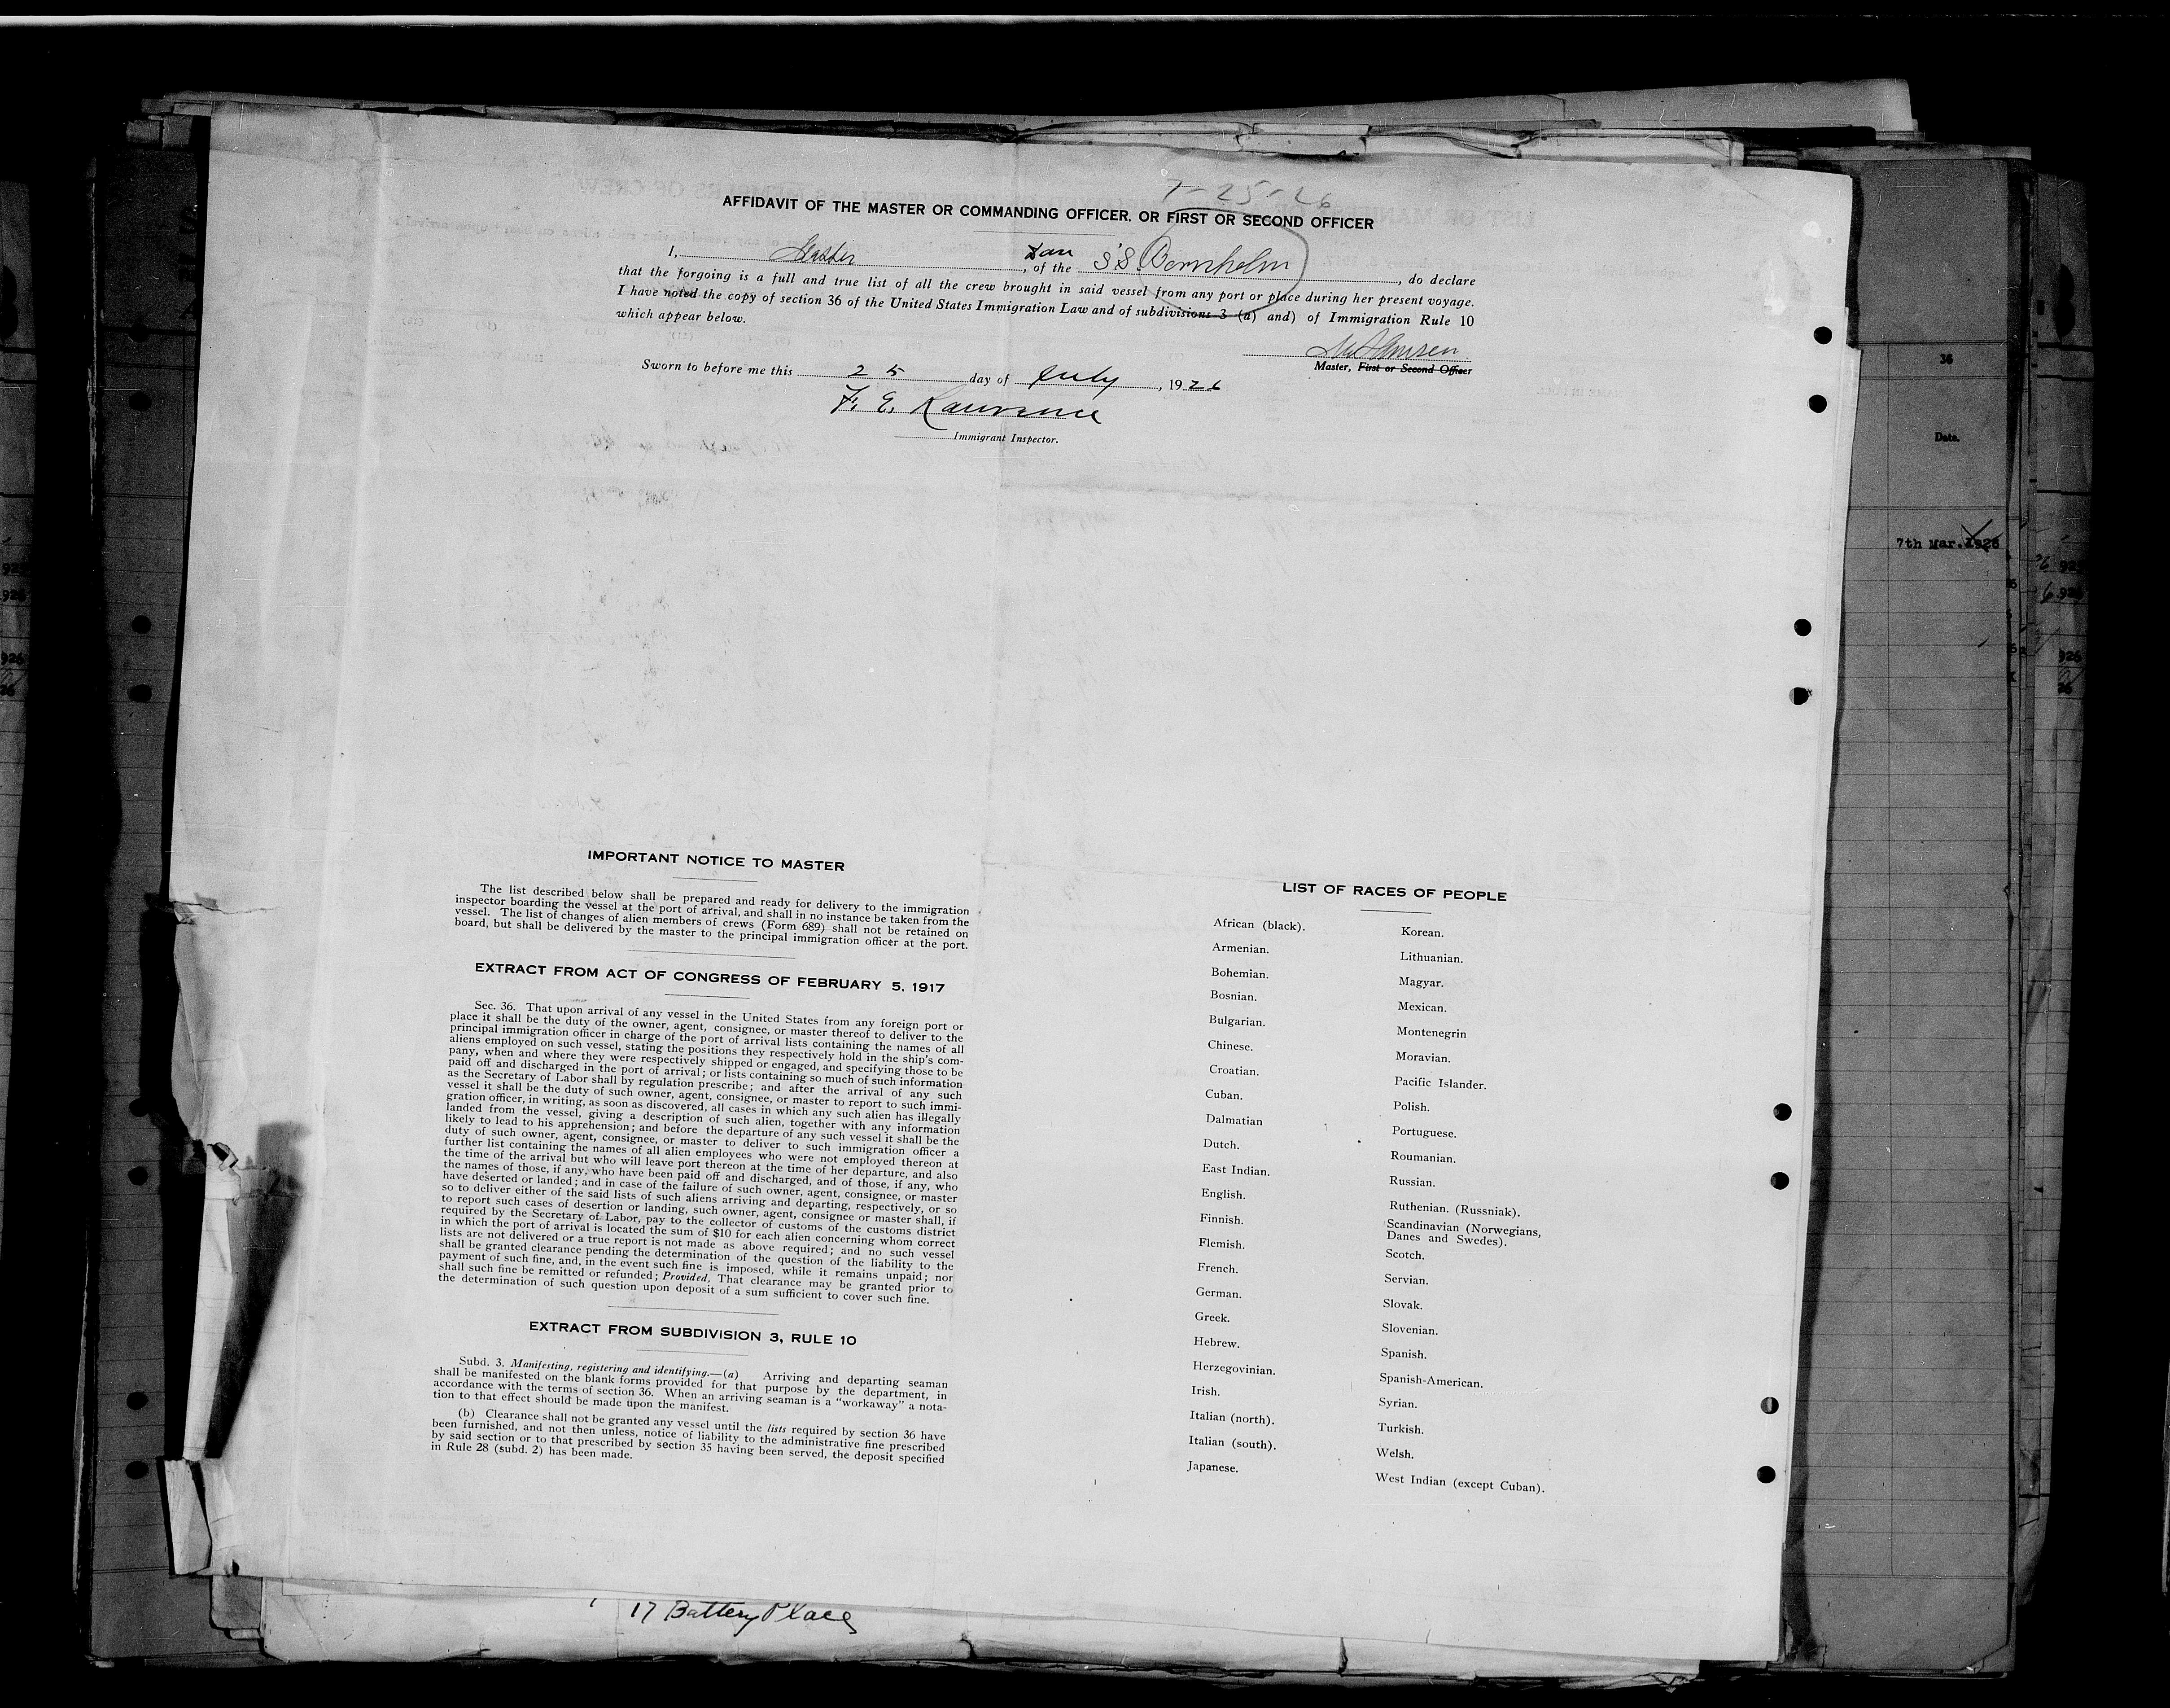 7-25-26
AFFIDAVIT OF THE MASTER OR COMMANDING OFFICER, OR FIRST OR SECOND OFFICER
I, Master, of the Dan S.S. Bornholm, do declare
that the forgoing is a full and true list of all the crew brought in said vessel from any port or place during her present voyage.
I have noted the copy of section 36 of the United States Immigration Law and of subdivisions 3 (a) and) of Immigration Rule 10
which appear below.
Master, First or Second Officer
Sworn to before me this 25 day of July, 1926
F. E. Lawrence
Immigrant Inspector.
IMPORTANT NOTICE TO MASTER
The list described below shall be prepared and ready for delivery to the immigration
inspector boarding the vessel at the port of arrival, and shall in no instance be taken from the
vessel. The list of changes of alien members of crews (Form 689) shall not be retained on
board, but shall be delivered by the master to the principal immigration officer at the port.
EXTRACT FROM ACT OF CONGRESS OF FEBRUARY 5, 1917
Sec. 36. That upon arrival of any vessel in the United States from any foreign port or
place it shall be the duty of the owner, agent, consignee, or master thereof to deliver to the
principal immigration officer in charge of the port of arrival lists containing the names of all
aliens employed on such vessel, stating the positions they respectively hold in the ship's com-
pany, when and where they were respectively shipped or engaged, and specifying those to be
paid off and discharged in the port of arrival; or lists containing so much of such information
as the Secretary of Labor shall by regulation prescribe; and after the arrival of any such
vessel it shall be the duty of such owner, agent, consignee, or master to report to such immi-
gration officer, in writing, as soon as discovered, all cases in which any such alien has illegally
landed from the vessel, giving a description of such alien, together with any information
likely to lead to his apprehension; and before the departure of any such vessel it shall be the
duty of such owner, agent, consignee, or master to deliver to such immigration officer a
further list containing the names of all alien employees who were not employed thereon at
the time of the arrival but who will leave port thereon at the time of her departure, and also
the names of those, if any, who have been paid off and discharged, and of those, if any, who
have deserted or landed; and in case of the failure of such owner, agent, consignee, or master
so to deliver either of the said lists of such aliens arriving and departing, respectively, or so
to report such cases of desertion or landing, such owner, agent, consignee or master shall, if
required by the Secretary of Labor, pay to the collector of customs of the customs district
in which the port of arrival is located the sum of $10 for each alien concerning whom correct
lists are not delivered or a true report is not made as above required; and no such vessel
shall be granted clearance pending the determination of the question of the liability to the
payment of such fine, and, in the event such fine is imposed, while it remains unpaid; nor
shall such fine be remitted or refunded; Provided, That clearance may be granted prior to
the determination of such question upon deposit of a sum sufficient to cover such fine.
EXTRACT FROM SUBDIVISION 3, RULE 10
Subd. 3. Manifesting, registering and identifying.—(a) Arriving and departing seaman
shall be manifested on the blank forms provided for that purpose by the department, in
accordance with the terms of section 36. When an arriving seaman is a "workaway" a nota-
tion to that effect should be made upon the manifest.
(b) Clearance shall not be granted any vessel until the lists required by section 36 have
been furnished, and not then unless, notice of liability to the administrative fine prescribed
by said section or to that prescribed by section 35 having been served, the deposit specified
in Rule 28 (subd. 2) has been made.
LIST OF RACES OF PEOPLE
African (black).
Armenian.
Bohemian.
Bosnian.
Bulgarian.
Chinese.
Croatian.
Cuban.
Dalmatian
Dutch.
East Indian.
English.
Finnish.
Flemish.
French.
German.
Greek.
Hebrew.
Herzegovinian.
Irish.
Italian (north).
Italian (south).
Japanese.
Korean.
Lithuanian.
Magyar.
Mexican.
Montenegrin
Moravian.
Pacific Islander.
Polish.
Portuguese.
Roumanian.
Russian.
Ruthenian. (Russniak).
Scandinavian (Norwegians,
Danes and Swedes).
Scotch.
Servian.
Slovak.
Slovenian.
Spanish.
Spanish-American.
Syrian.
Turkish.
Welsh.
West Indian (except Cuban).
17 Battery Place
36
Date.
7th Mar. 1926